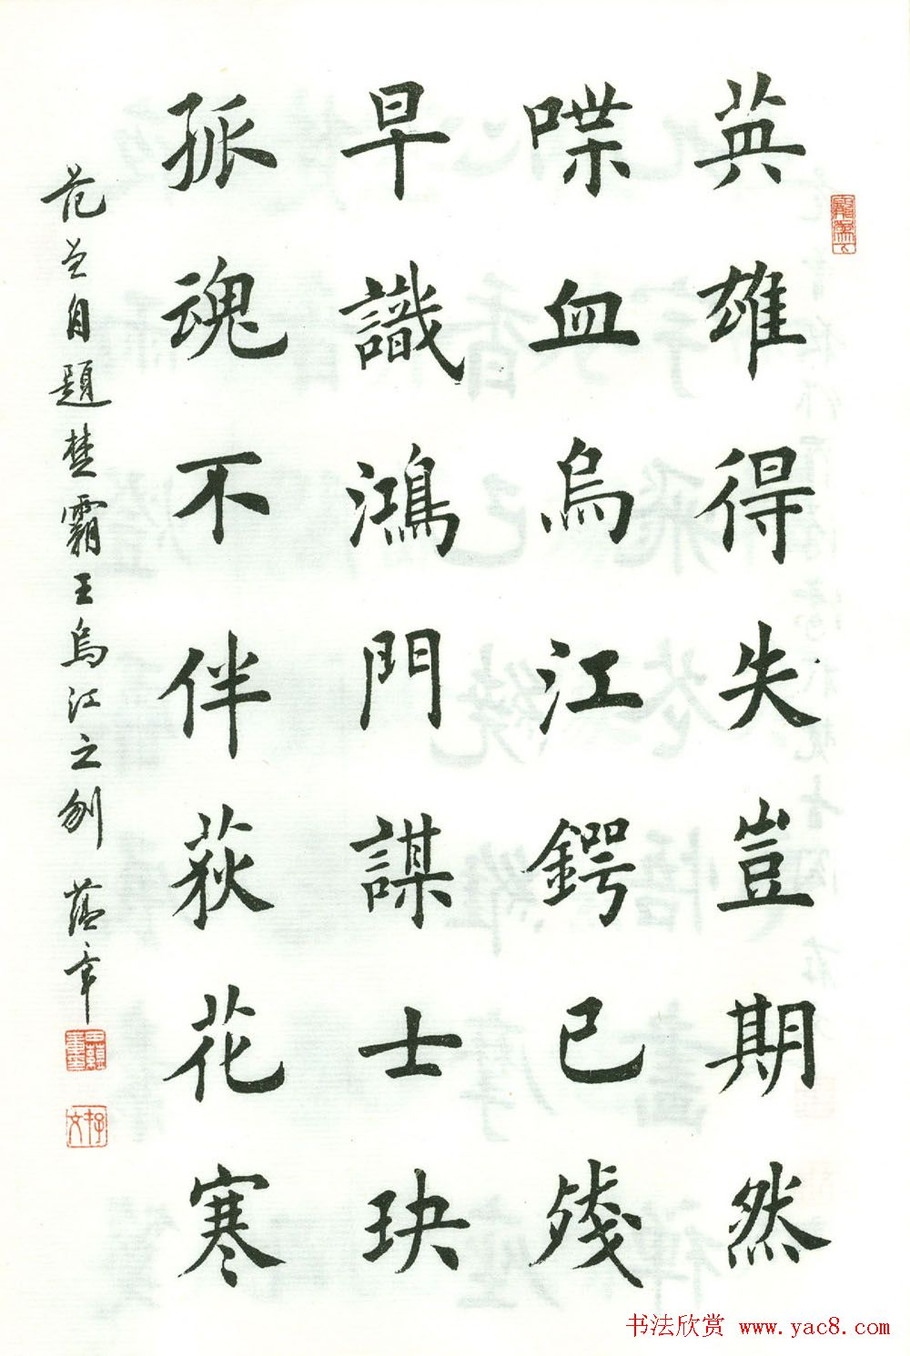 英雄得失豈期然
喋血烏江鍔已殘
早識鴻門謀士玦
孤魂不伴荻花寒
范曾自題楚霸王烏江之刎 蘊章
书法欣赏 www.yac8.com